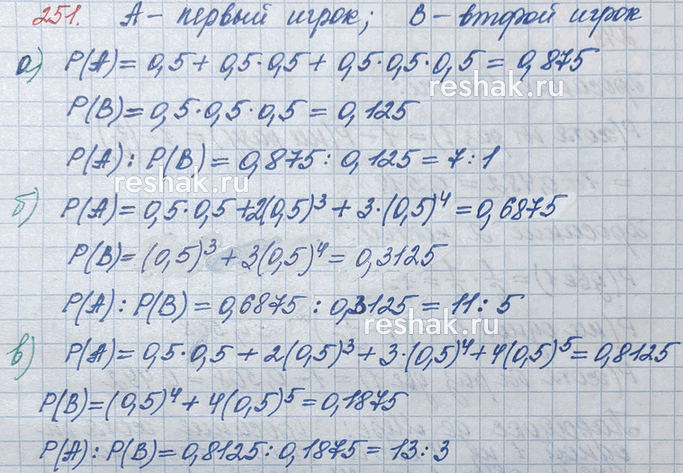 251. A – первый игрок; B – второй игрок
а) P(A) = 0,5 + 0,5·0,5 + 0,5·0,5·0,5 = 0,875
reshak.ru
P(B) = 0,5·0,5·0,5 = 0,125
P(A) : P(B) = 0,875 : 0,125 = 7:1
reshak.ru
б) P(A) = 0,5·0,5 + 2(0,5)³ + 3·(0,5)⁴ = 0,6875
P(B) = (0,5)³ + 3(0,5)⁴ = 0,3125
P(A) : P(B) = 0,6875 : 0,3125 = 11:5
reshak.ru
в) P(A) = 0,5·0,5 + 2(0,5)³ + 3·(0,5)⁴ + 4(0,5)⁵ = 0,8125
P(B) = (0,5)⁴ + 4(0,5)⁵ = 0,1875
P(A) : P(B) = 0,8125 : 0,1875 = 13:3